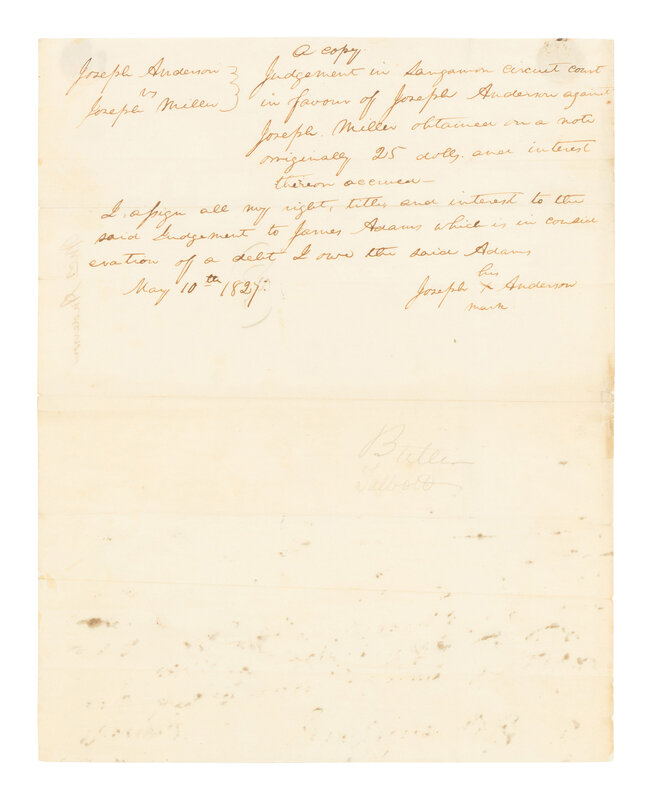 A copy
Joseph Anderson
vs
Joseph Miller
Judgement in Sangamon circuit court
in favour of Joseph Anderson against
Joseph Miller obtained on a note
originally 25 dolls. and interest
thereon accrued—
I assign all my right, title, and interest to the
said Judgement to James Adams which is in consid
eration of a debt I owe the said Adams
May 10th 1827.
his
Joseph x Anderson
mark
Butler
Talbott